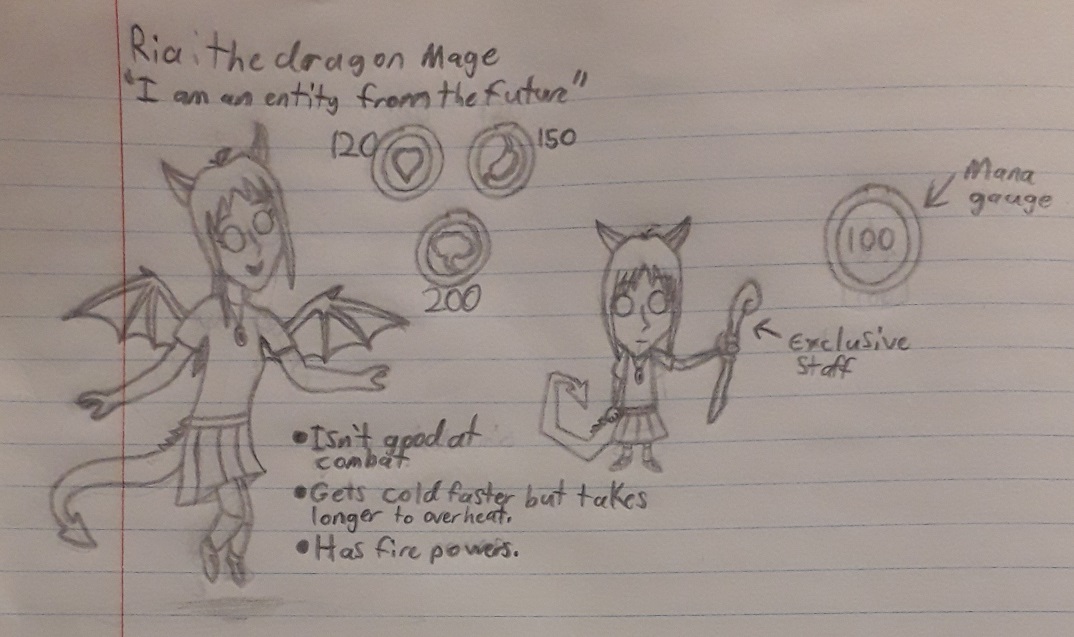 Ria: the dragon Mage
"I am an entity from the future"
120
150
200
Mana
gauge
100
Exclusive
staff
•Isn't good at
combat.
•Gets cold faster but takes
longer to overheat.
•Has fire powers.